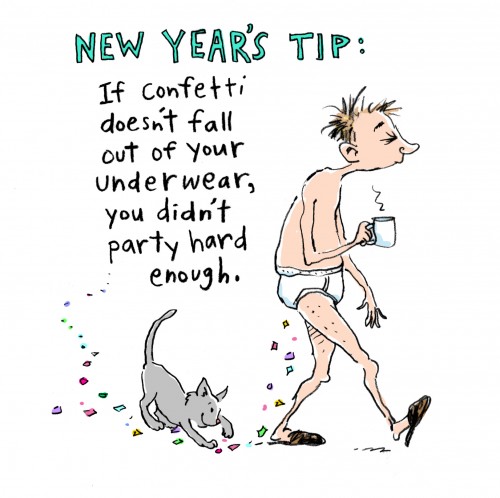 NEW YEAR'S TIP:
If confetti
doesn't fall
out of your
underwear,
you didn't
party hard
enough.